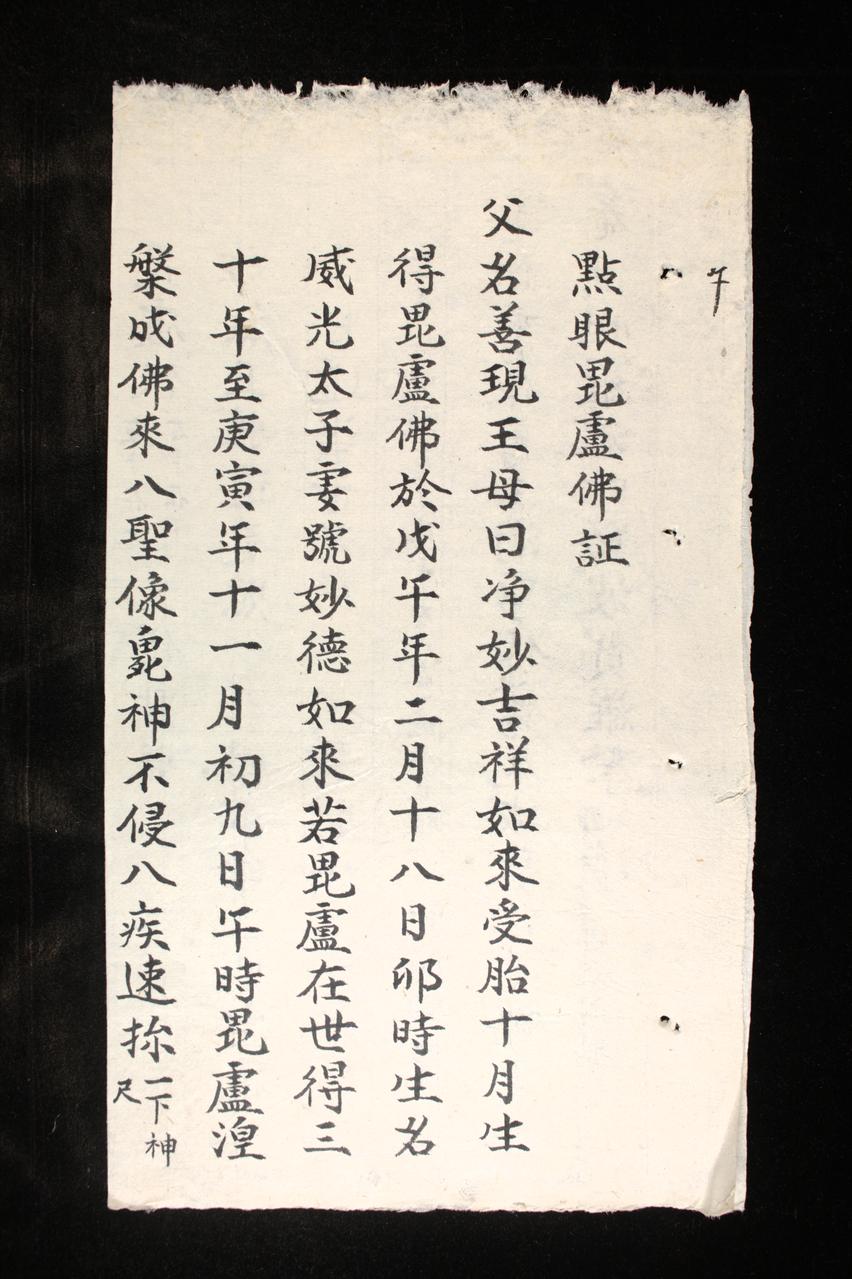 午
點眼毘盧佛証
父名善現王母曰净妙吉祥如來受胎十月生
得毘盧佛於戊午年二月十八日卯時生名
威光太子妻號妙德如來若毘盧在世得三
十年至庚寅年十一月初九日午時毘盧湼
槃成佛來八聖像㲋神不侵八疾速捺
一下神
尺